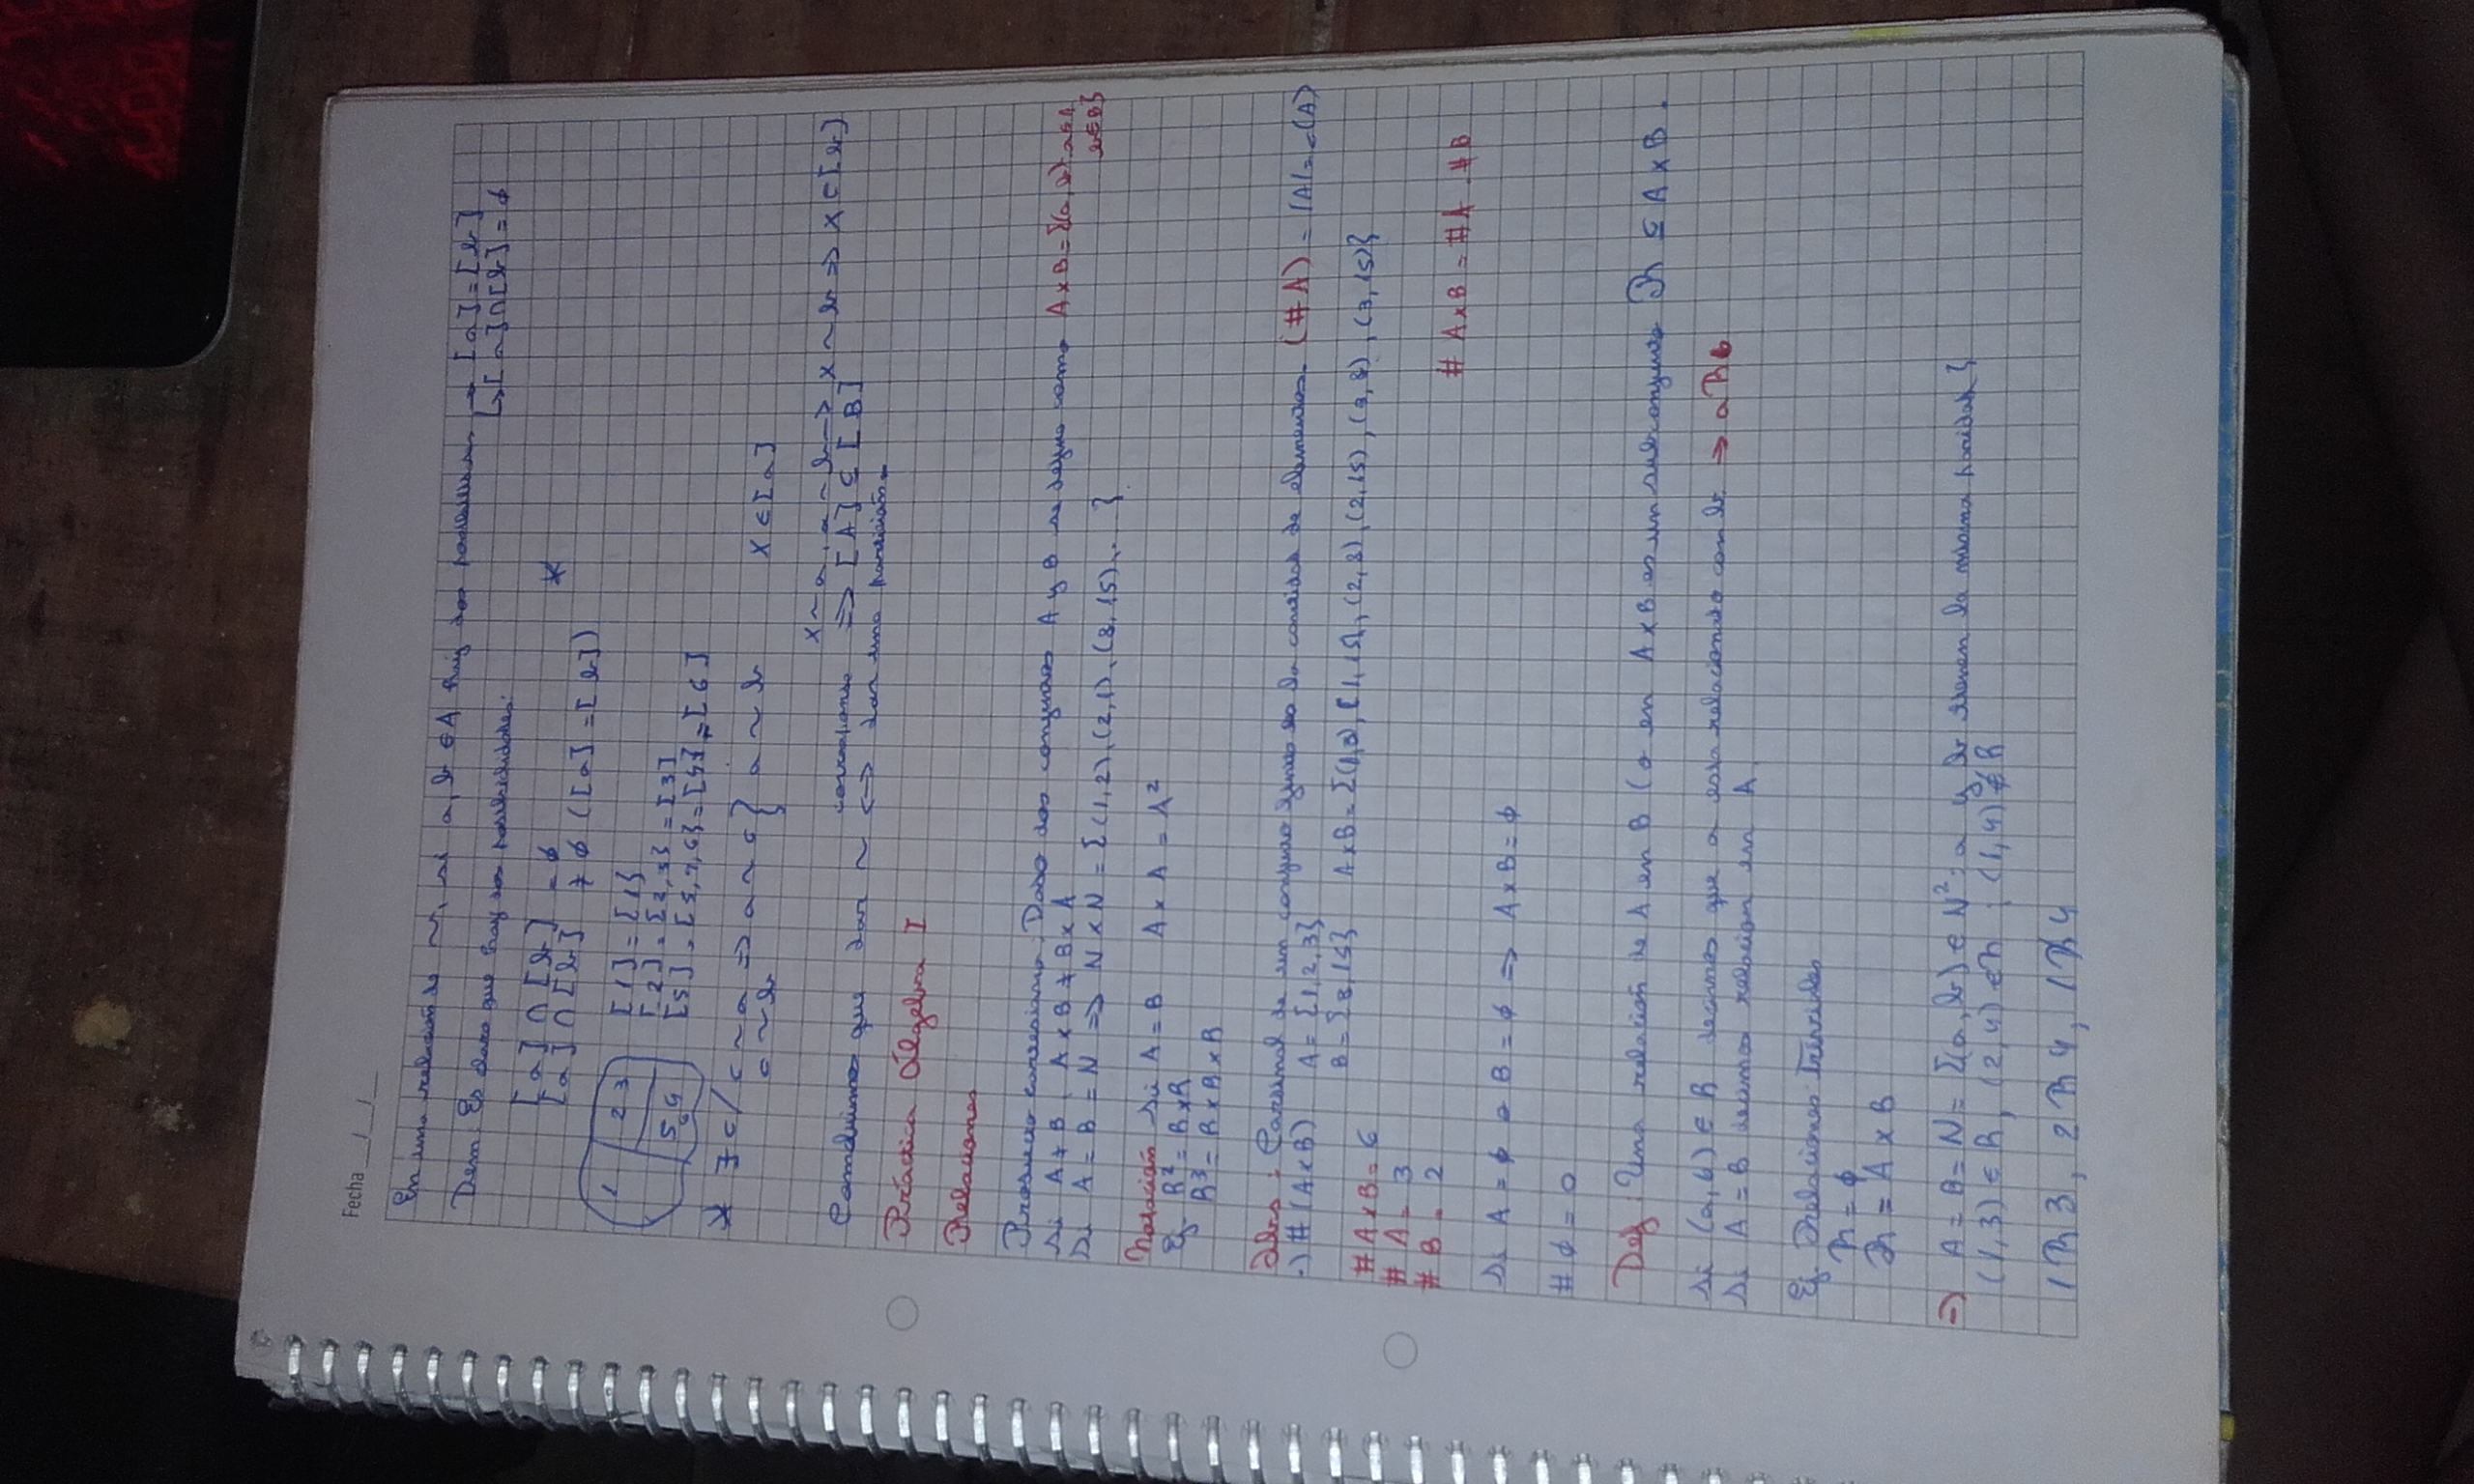 Fecha __/__/__
En una relación de ~, si a, b ∈ A hay dos → [a] = [b]
↳ [a] ∩ [b] = ∅
Dem: Es claro que hay dos posibilidades:
[a] ∩ [b] = ∅
[a] ∩ [b] ≠ ∅ ([a] = [b]) *
1 2 3 [1] = {1}
[2] = {2,3} = [3]
5 4 6 [5] = [5,4,6} = [4] = [6]
* ∃ c / c ~ a ⇒ a ~ c } a ~ b x ∈ [a]
c ~ b
x ~ a, a ~ b → x ~ b ⇒ x ∈ [b]
⇒ [A] ⊆ [B]
Concluimos que dar ~ ↔ dar una partición
corresponde
Práctica Álgebra I
Relaciones
Producto cartesiano: Dado dos conjuntos A y B se define como A x B = {(a, b): a ∈ A
b ∈ B}
Si A ≠ B, A x B ≠ B x A
Si A = B = N ⇒ N x N = {(1,2), (2,1), (8,15), ... }
Notación Si A = B A x A = A²
Ej. R² = R x R
R³ = R x R x R
Obs: Cardinal de un conjunto finito es la cantidad de elementos. (#A) = |A| = c(A)
·) # (A x B) A = {1,2,3}
B = {8,15} A x B = {(1,8), (1,15), (2,8), (2,15), (3,8), (3,15)}
# A x B = 6
# A = 3
# B = 2
# A x B = #A . #B
Si A = ∅ o B = ∅ ⇒ A x B = ∅
# ∅ = 0
Def: Una relación de A en B (o en A x B es un subconjunto R ⊆ A x B.
Si (a, b) ∈ R decimos que a esta relacionado con b. → a R b
Si A = B decimos relacion en A.
Ej. Relaciones Triviales
R = ∅
R = A x B
⇒) A = B = N = {(a, b) ∈ N²: a y b tienen la misma paridad}
(1,3) ∈ R, (2,4) ∈ R, (1,4) ∉ R
1 R 3, 2 R 4, 1 R̸ 4